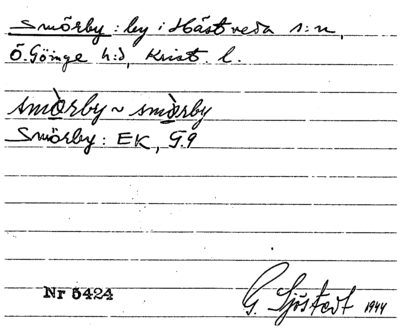 Smörby: by i Hästveda s:n,
Ö. Göinge h:d, Krist. l.
smò̲rby ~ smò̲rby
Smörby: EK, G.9
Nr 5424
G. Sjöstedt 1944